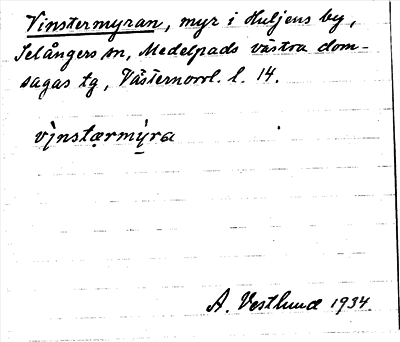 Vinstermyran, myr i Huljens by,
Selångers sn, Medelpads västra dom-
sagas tg, Västernorrl. l. 14.
vìnstærmýra
A. Vestlund 1934.